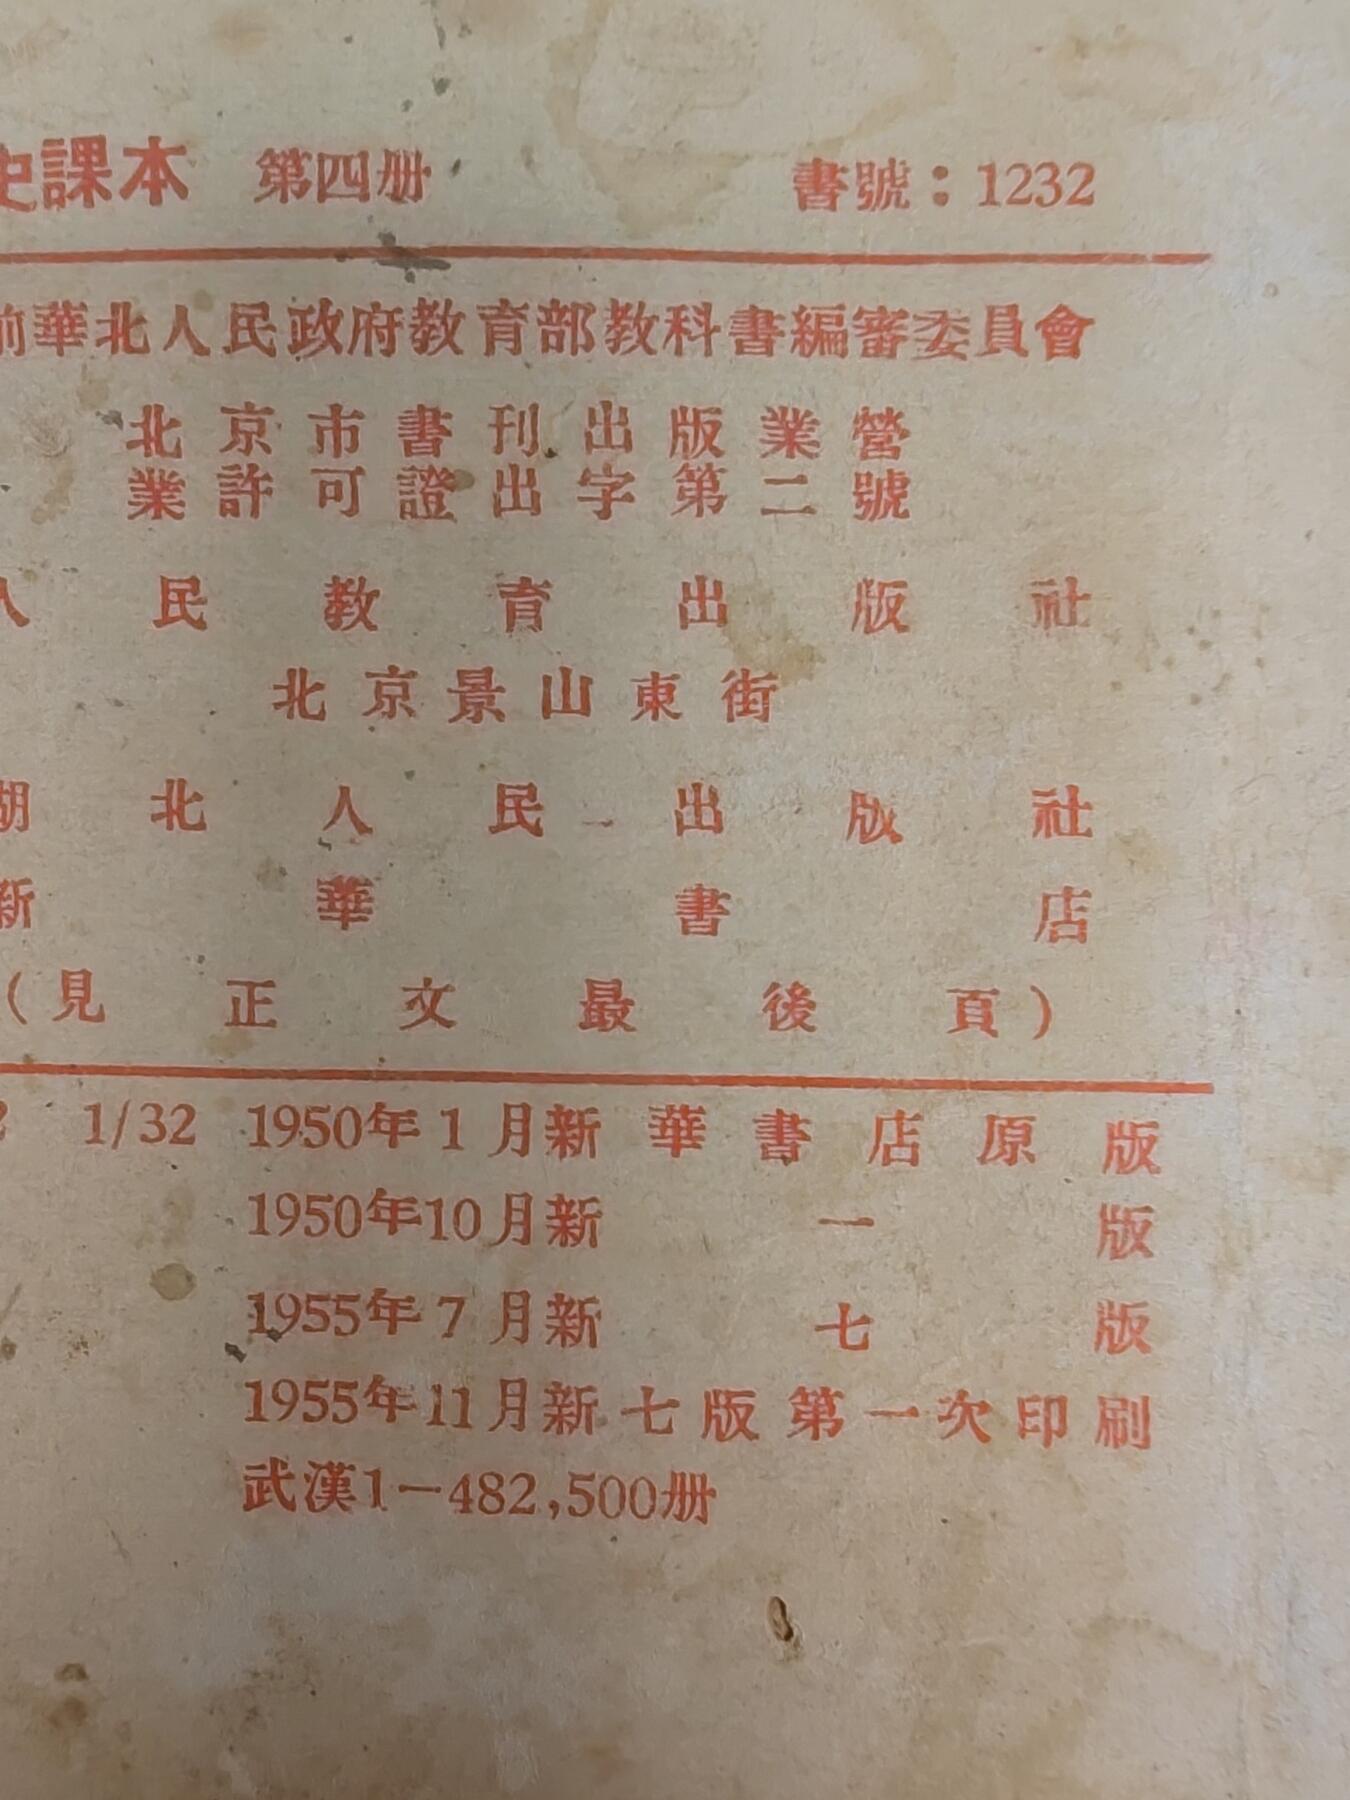 史課本 第四册 書號：1232
前華北人民政府教育部教科書編審委員會
北京市書刊出版業營
業許可證出字第二號
人民教育出版社
北京景山東街
湖北人民出版社
新華書店
（見正文最後頁）
1/32 1950年1月新華書店原版
1950年10月新一版
1955年7月新七版
1955年11月新七版第一次印刷
武漢1－482,500册